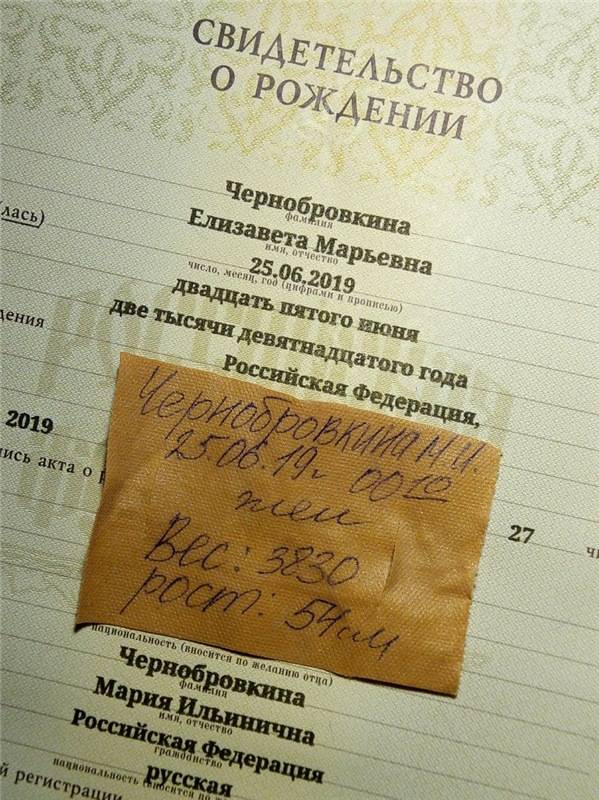 СВИДЕТЕЛЬСТВО
О РОЖДЕНИИ
Чернобровкина
фамилия
лась)
Елизавета Марьевна
имя, отчество
25.06.2019
число, месяц, год (цифрами и прописью)
двадцать пятого июня
дения
две тысячи девятнадцатого года
Российская Федерация,
2019
ись акта о р
Чернобровкина М.И.
25.06.19г 00 10
жен
Вес: 3830
рост: 54см
27
чи
национальность (вносится по желанию отца)
Чернобровкина
фамилия
Мария Ильинична
имя, отчество
Российская Федерация
гражданство
русская
национальность (вносится по же
й регистрации